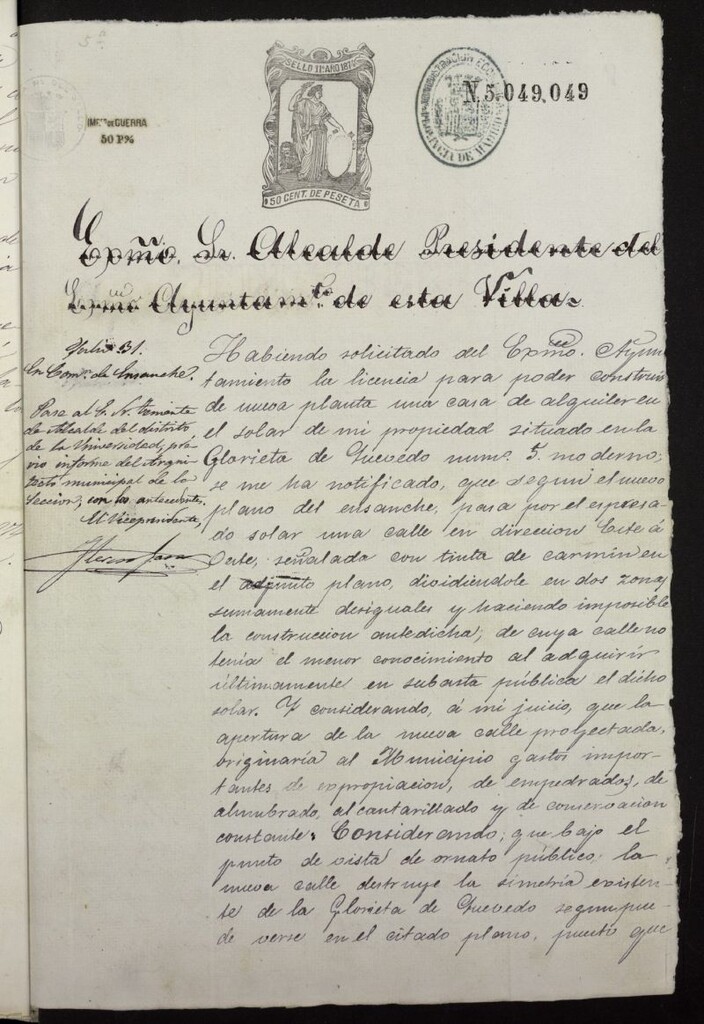 5º
SELLO 11º AÑO 187
50 CENT. DE PESETA
IMPTO DE GUERRA
50 P%
ADMINISTRACION ECO
PROVINCIA DE MADRID
N.5.049,049
Exmo. Sr. Alcalde Presidente del
Exmo Ayuntamto. de esta Villa.
Julio 31.
En Comon. de Ensanche.
Pase al S. Sr. Teniente
de Alcalde del distrito
de la Universidad, pré-
vio informe del Arqui-
tecto municipal de la
Seccion, con los antecedentes.
El Vicepresidente,
Habiendo solicitado del Exmo. Ayun-
tamiento la licencia para poder construir
de nueva planta una casa de alquiler en
el solar de mi propiedad situado en la
Glorieta de Quevedo num. 5. moderno,
se me ha notificado, que segun el nuevo
plano del ensanche, pasa por el espresa-
do solar una calle en direccion Este á
Oeste, señalada con tinta de carmin en
el adjunto plano, dividiéndole en dos zonas
sumamente desiguales y haciendo imposible
la construccion antedicha, de cuya calle no
tenía el menor conocimiento al adquirir
últimamente en subasta pública el dicho
solar. Y considerando, á mi juicio, que la
apertura de la nueva calle proyectada,
originaría al Municipio gastos impor-
tantes de expropiacion, de empedrados, de
alumbrado, alcantarillado y de conservacion
constante. Considerando, que bajo el
punto de vista de ornato público, la
nueva calle destruye la simetría existen-
te de la Glorieta de Quevedo segun pue-
de verse en el citado plano, puesto que